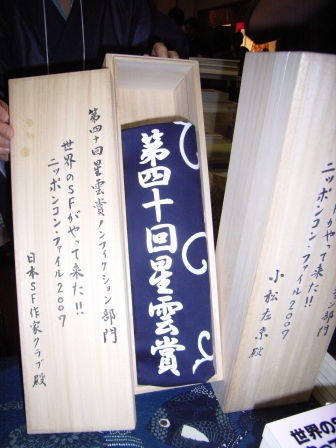 第四十回星雲賞ノンフィクション部門
世界のSFがやって来た!!
ニッポンコン・ファイル2007
日本SF作家クラブ殿
第四十回星雲賞
部門
やって来た!!
ニッポンコン・ファイル2007
小松左京殿
世界の